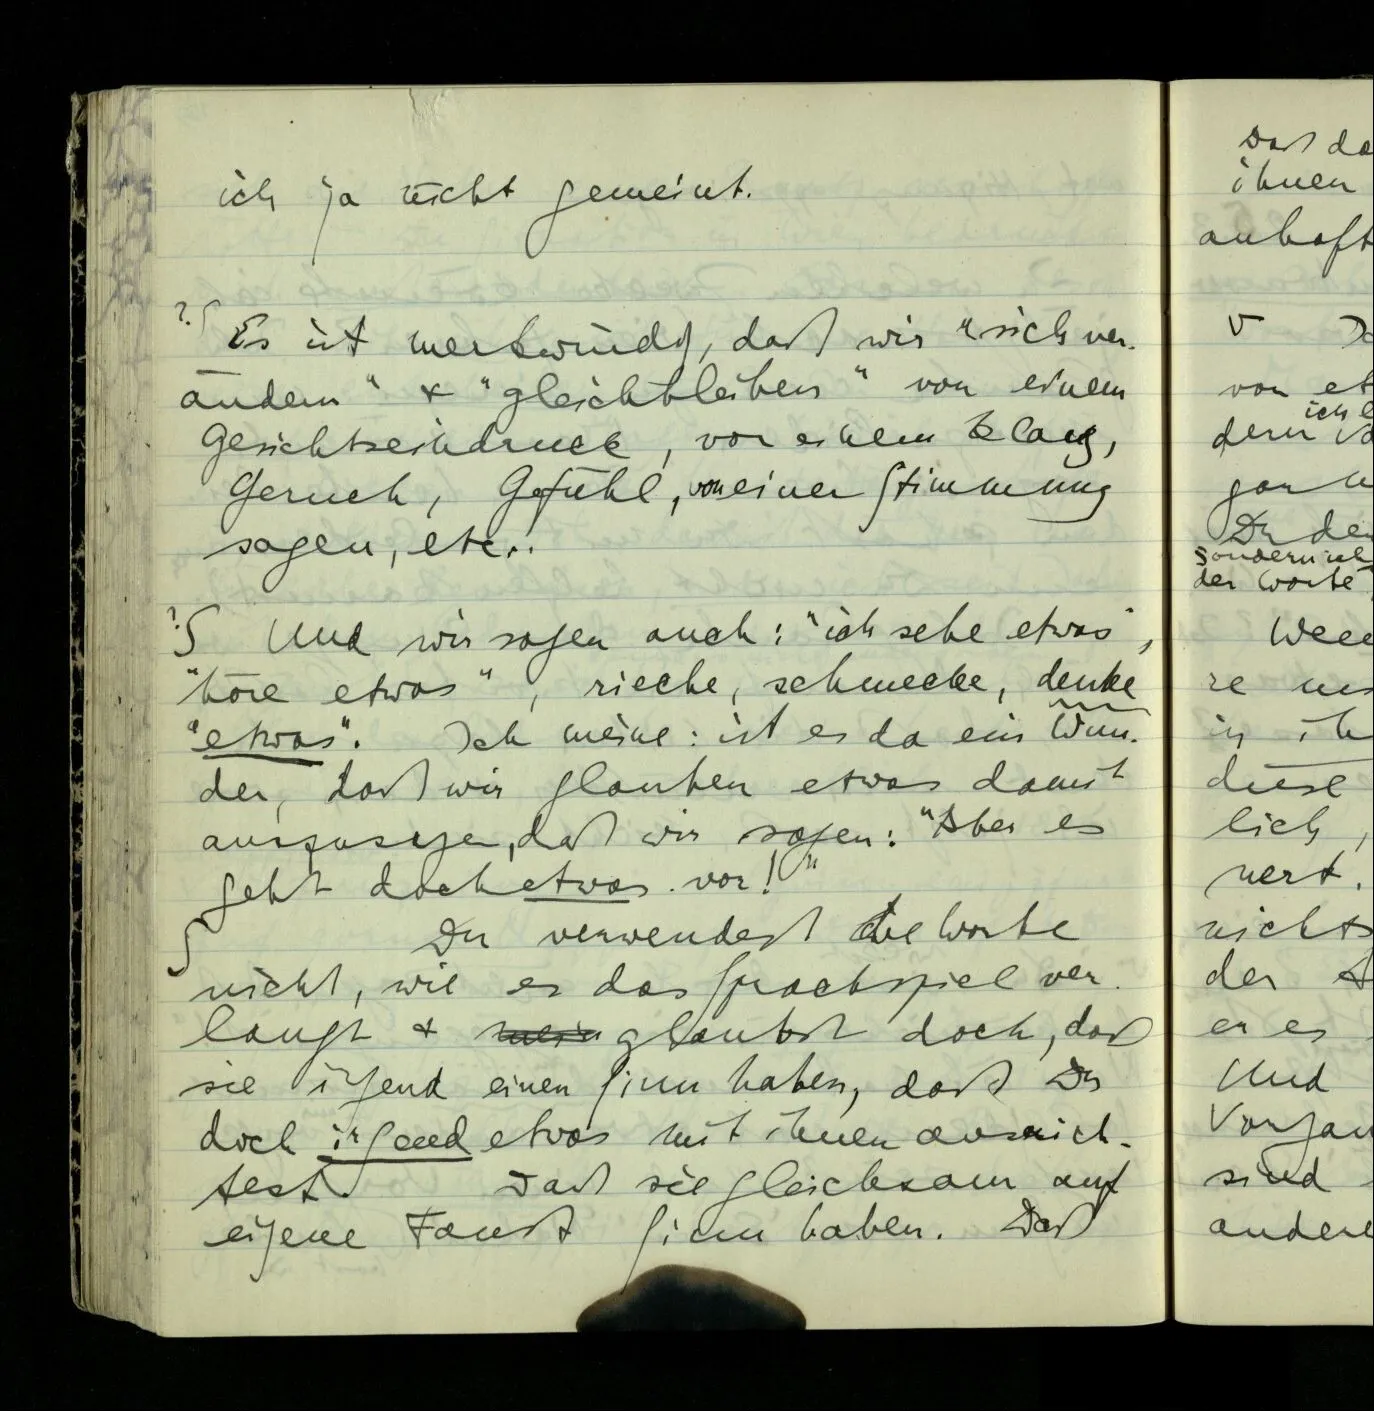 ich ja nicht gemeint.
?∫ Es ist merkwürdig, daß wir "sich ver-
ändern" & "gleichbleiben" von einem
Gesichtseindruck, von einem Klang,
Geruch, Gefühl, von einer Stimmung
sagen, etc..
?∫ Und wir sagen auch: "ich sehe etwas",
"höre etwas", rieche, schmecke, denke
"etwas". Ich meine: ist es da ein Wun-
der, daß wir glauben etwas damit
auszusagen, daß wir sagen: "Aber es
geht doch etwas vor!"
∫ Du verwendest die Worte
nicht, wie es das Sprachspiel ver-
langt & glaubst doch, daß
sie irgend einen Sinn haben, daß Du
doch irgend etwas mit ihnen ausrich-
test. Daß sie gleichsam auf
eigene Faust Sinn haben. Daß
Daß da
ihnen
anhaft
V
von et
ich
dern
gar
Du den
sondern ich
der Worte
re
in ih
diese
lich,
nert.
nichts
der
er es
Und
Vorgan
sind
andere